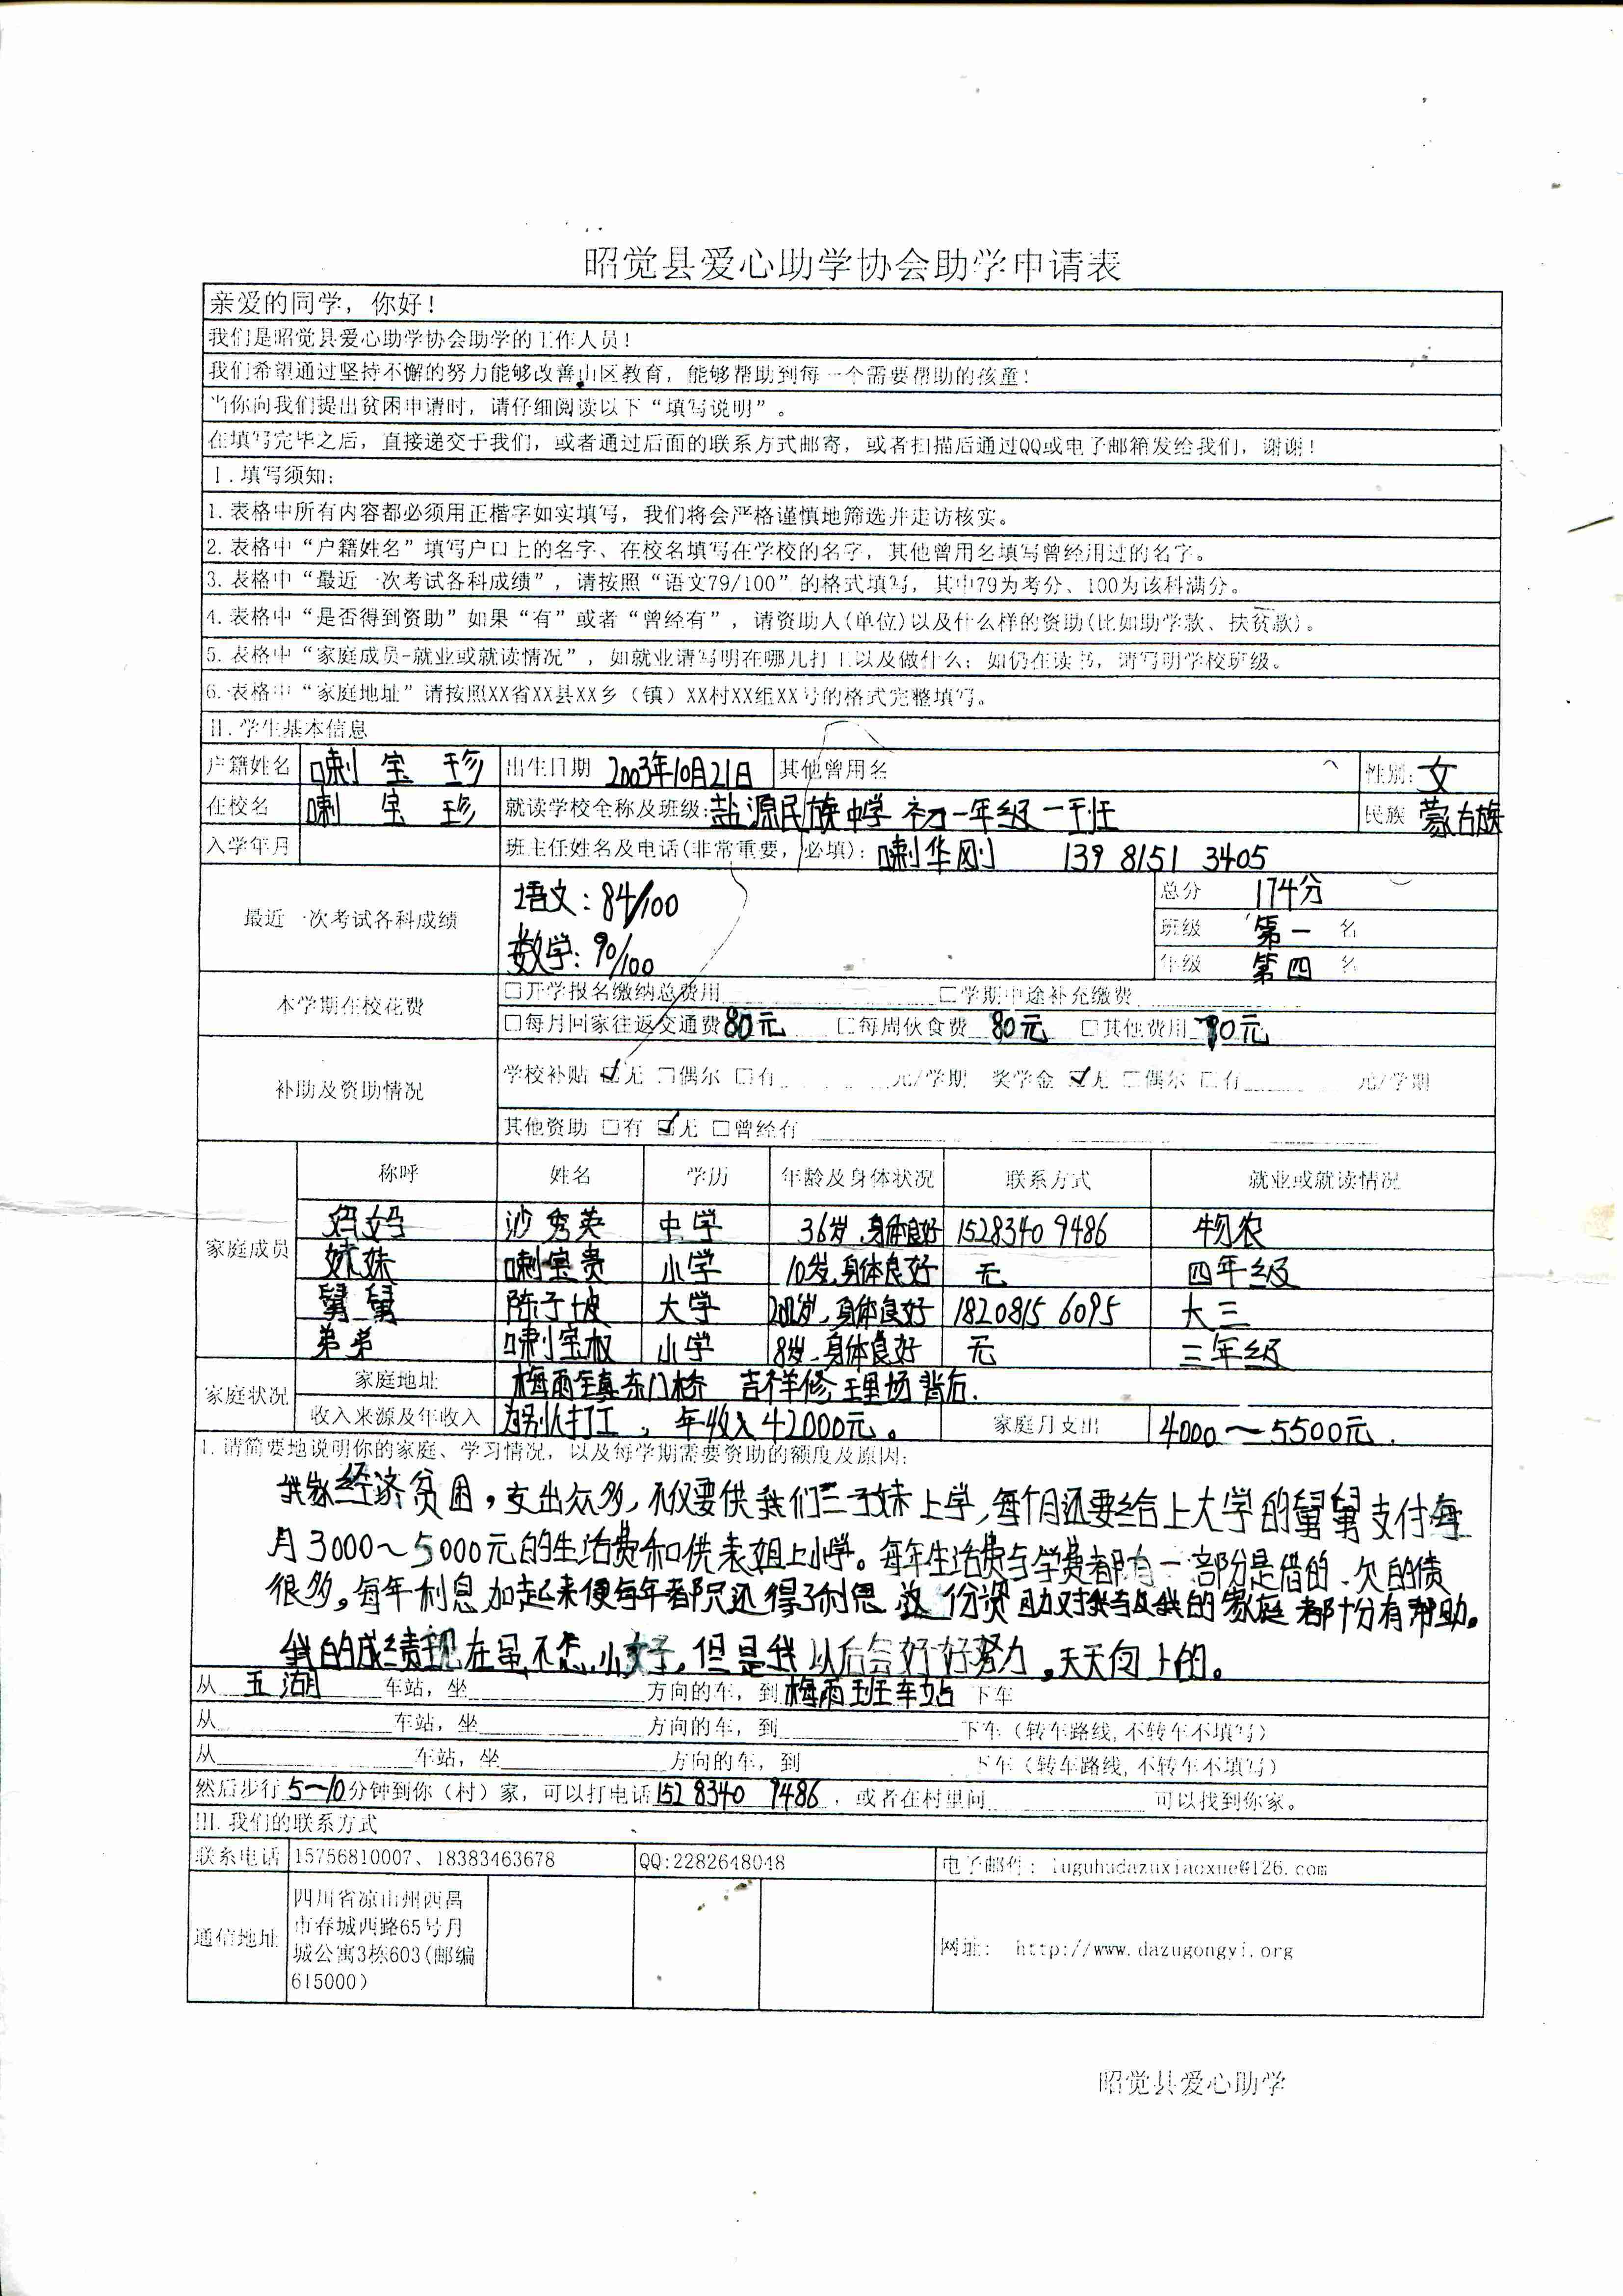 昭觉县爱心助学协会助学申请表
亲爱的同学，你好！
我们是昭觉县爱心助学协会助学的工作人员！
我们希望通过坚持不懈的努力能够改善山区教育，能够帮助到每一个需要帮助的孩童！
当你向我们提出贫困申请时，请仔细阅读以下“填写说明”。
在填写完毕之后，直接递交于我们，或者通过后面的联系方式邮寄，或者扫描后通过QQ或电子邮箱发给我们，谢谢！
I.填写须知：
1.表格中所有内容都必须用正楷字如实填写，我们将会严格谨慎地筛选并走访核实。
2.表格中“户籍姓名”填写户口上的名字、在校名填写在学校的名字，其他曾用名填写曾经用过的名字。
3.表格中“最近一次考试各科成绩”，请按照“语文79/100”的格式填写，其中79为考分、100为该科满分。
4.表格中“是否得到资助”如果“有”或者“曾经有”，请资助人(单位)以及什么样的资助(比如助学款、扶贫款)。
5.表格中“家庭成员-就业或就读情况”，如就业请写明在哪儿打工以及做什么；如仍在读书，请写明学校班级。
6.表格中“家庭地址”请按照XX省XX县XX乡（镇）XX村XX组XX号的格式完整填写。
II.学生基本信息
户籍姓名 喇宝珍 出生日期 2003年10月21日 其他曾用名 性别: 女
在校名 喇宝珍 就读学校全称及班级: 盐源民族中学 初一年级一班 民族 蒙古族
入学年月 班主任姓名及电话(非常重要，必填): 喇华刚 139 8151 3405
最近一次考试各科成绩 语文：84/100 总分 174分
数学：90/100 班级 第一 名
年级 第四 名
本学期在校花费 □开学报名缴纳总费用 □学期中途补充缴费
□每月回家往返交通费 80元 □每周伙食费 80元 □其他费用 90元
补助及资助情况 学校补贴 ☑无 □偶尔 □有 元/学期 奖学金 ☑无 □偶尔 □有 元/学期
其他资助 □有 ☑无 □曾经有
家庭成员 称呼 姓名 学历 年龄及身体状况 联系方式 就业或就读情况
妈妈 沙秀英 中学 36岁,身体良好 1528340 9486 务农
妹妹 喇宝贵 小学 10岁,身体良好 无 四年级
舅舅 陈子坡 大学 身体良好 1820815 6095 大三
弟弟 喇宝权 小学 8岁,身体良好 无 三年级
家庭状况 家庭地址 梅雨镇东门桥 吉祥修理场背后.
收入来源及年收入 为别人打工，年收入42000元。 家庭月支出 4000～5500元.
1.请简要地说明你的家庭、学习情况，以及每学期需要资助的额度及原因：
我家经济贫困，支出众多，不仅要供我们三子妹上学，每个月还要给上大学的舅舅支付每
月3000～5000元的生活费和供表姐上小学。每年生活费与学费都有一部分是借的、欠的债
很多。每年利息加起来便每年都只还得了利息 这份资助对我与及我的家庭都十分有帮助。
我的成绩现在虽不怎么好，但是我以后会好好努力，天天向上的。
从 五湖 车站，坐 方向的车，到 梅雨班车站 下车
从 车站，坐 方向的车，到 下车（转车路线,不转车不填写）
从 车站，坐 方向的车，到 下车（转车路线,不转车不填写）
然后步行 5～10 分钟到你（村）家，可以打电话 152 8340 9486 ，或者在村里问 可以找到你家。
III.我们的联系方式
联系电话 15756810007、18383463678 QQ:2282648048 电子邮件：luguhudazuxiaoxue@126.com
通信地址 四川省凉山州西昌
市春城西路65号月
城公寓3栋603(邮编
615000） 网址： http://www.dazugongyi.org
昭觉县爱心助学